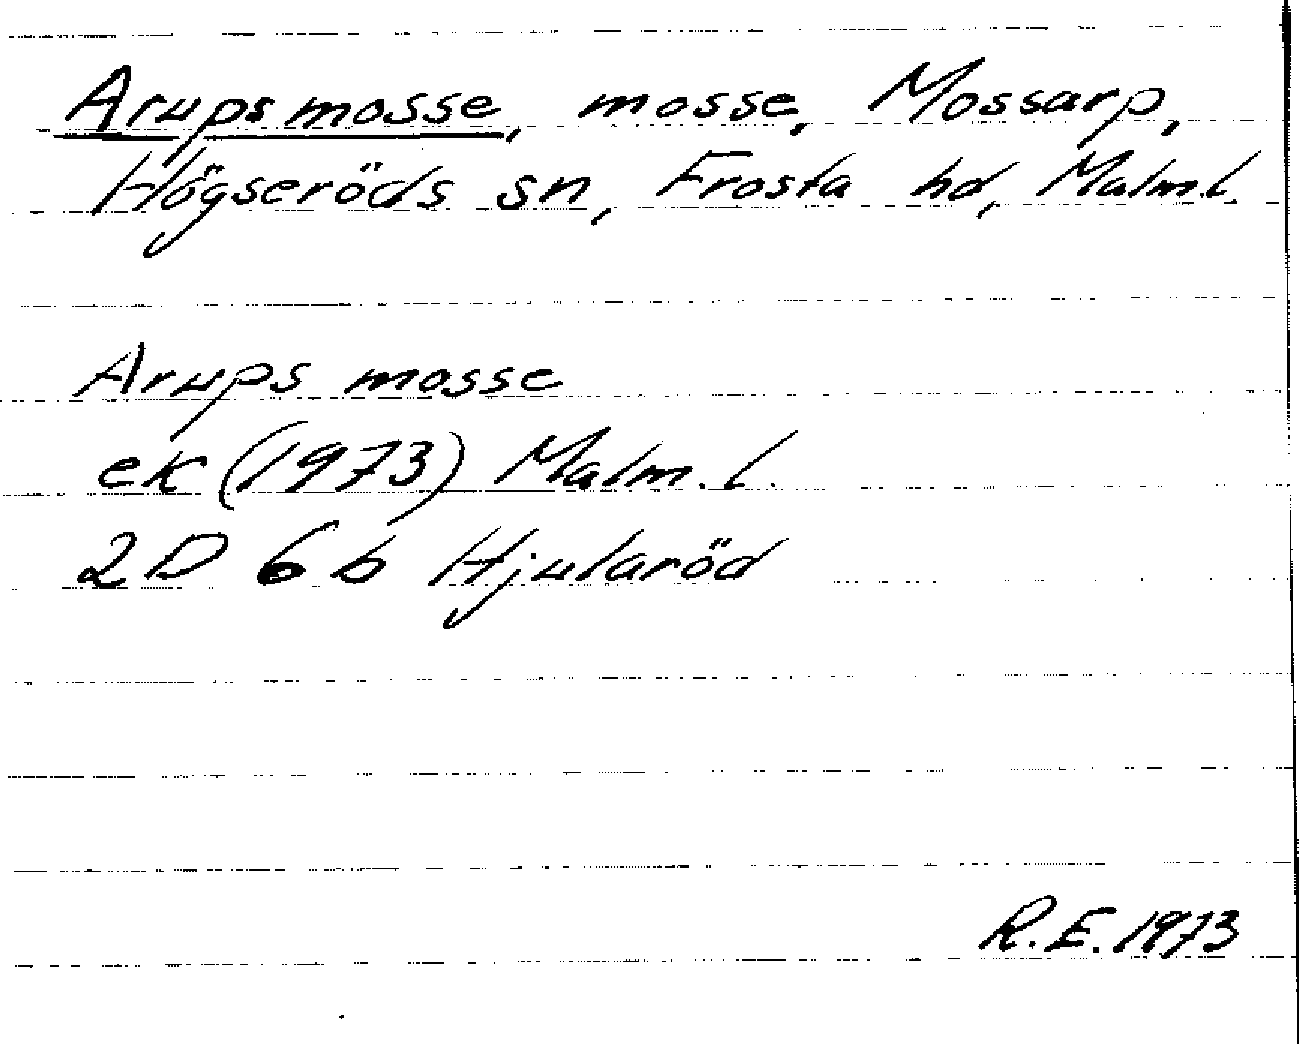 Arupsmosse, mosse, Mossarp,
Högseröds sn, Frosta hd, Malm.l.
Arups mosse
ek (1973) Malm. l.
2D 6b Hjularöd
R.E. 1973